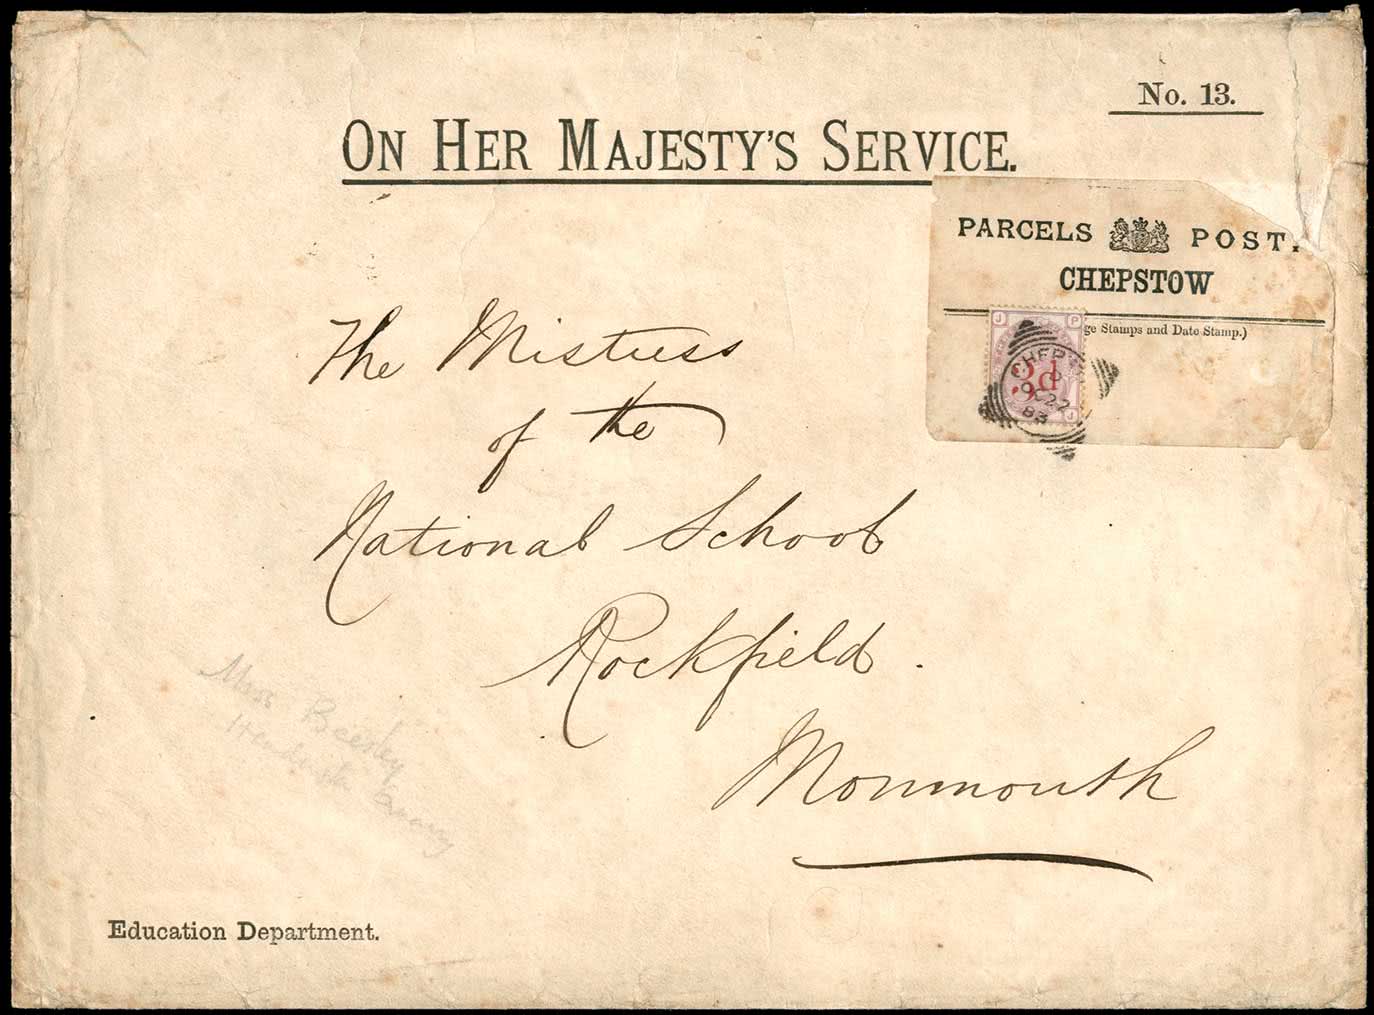 No. 13.
ON HER MAJESTY'S SERVICE.
PARCELS POST.
CHEPSTOW
ge Stamps and Date Stamp.)
J P
3d
CHEPS
OC 22
83
J
The Mistress
of the
National School
Rockfield.
Monmouth
Miss Beesley
Education Department.